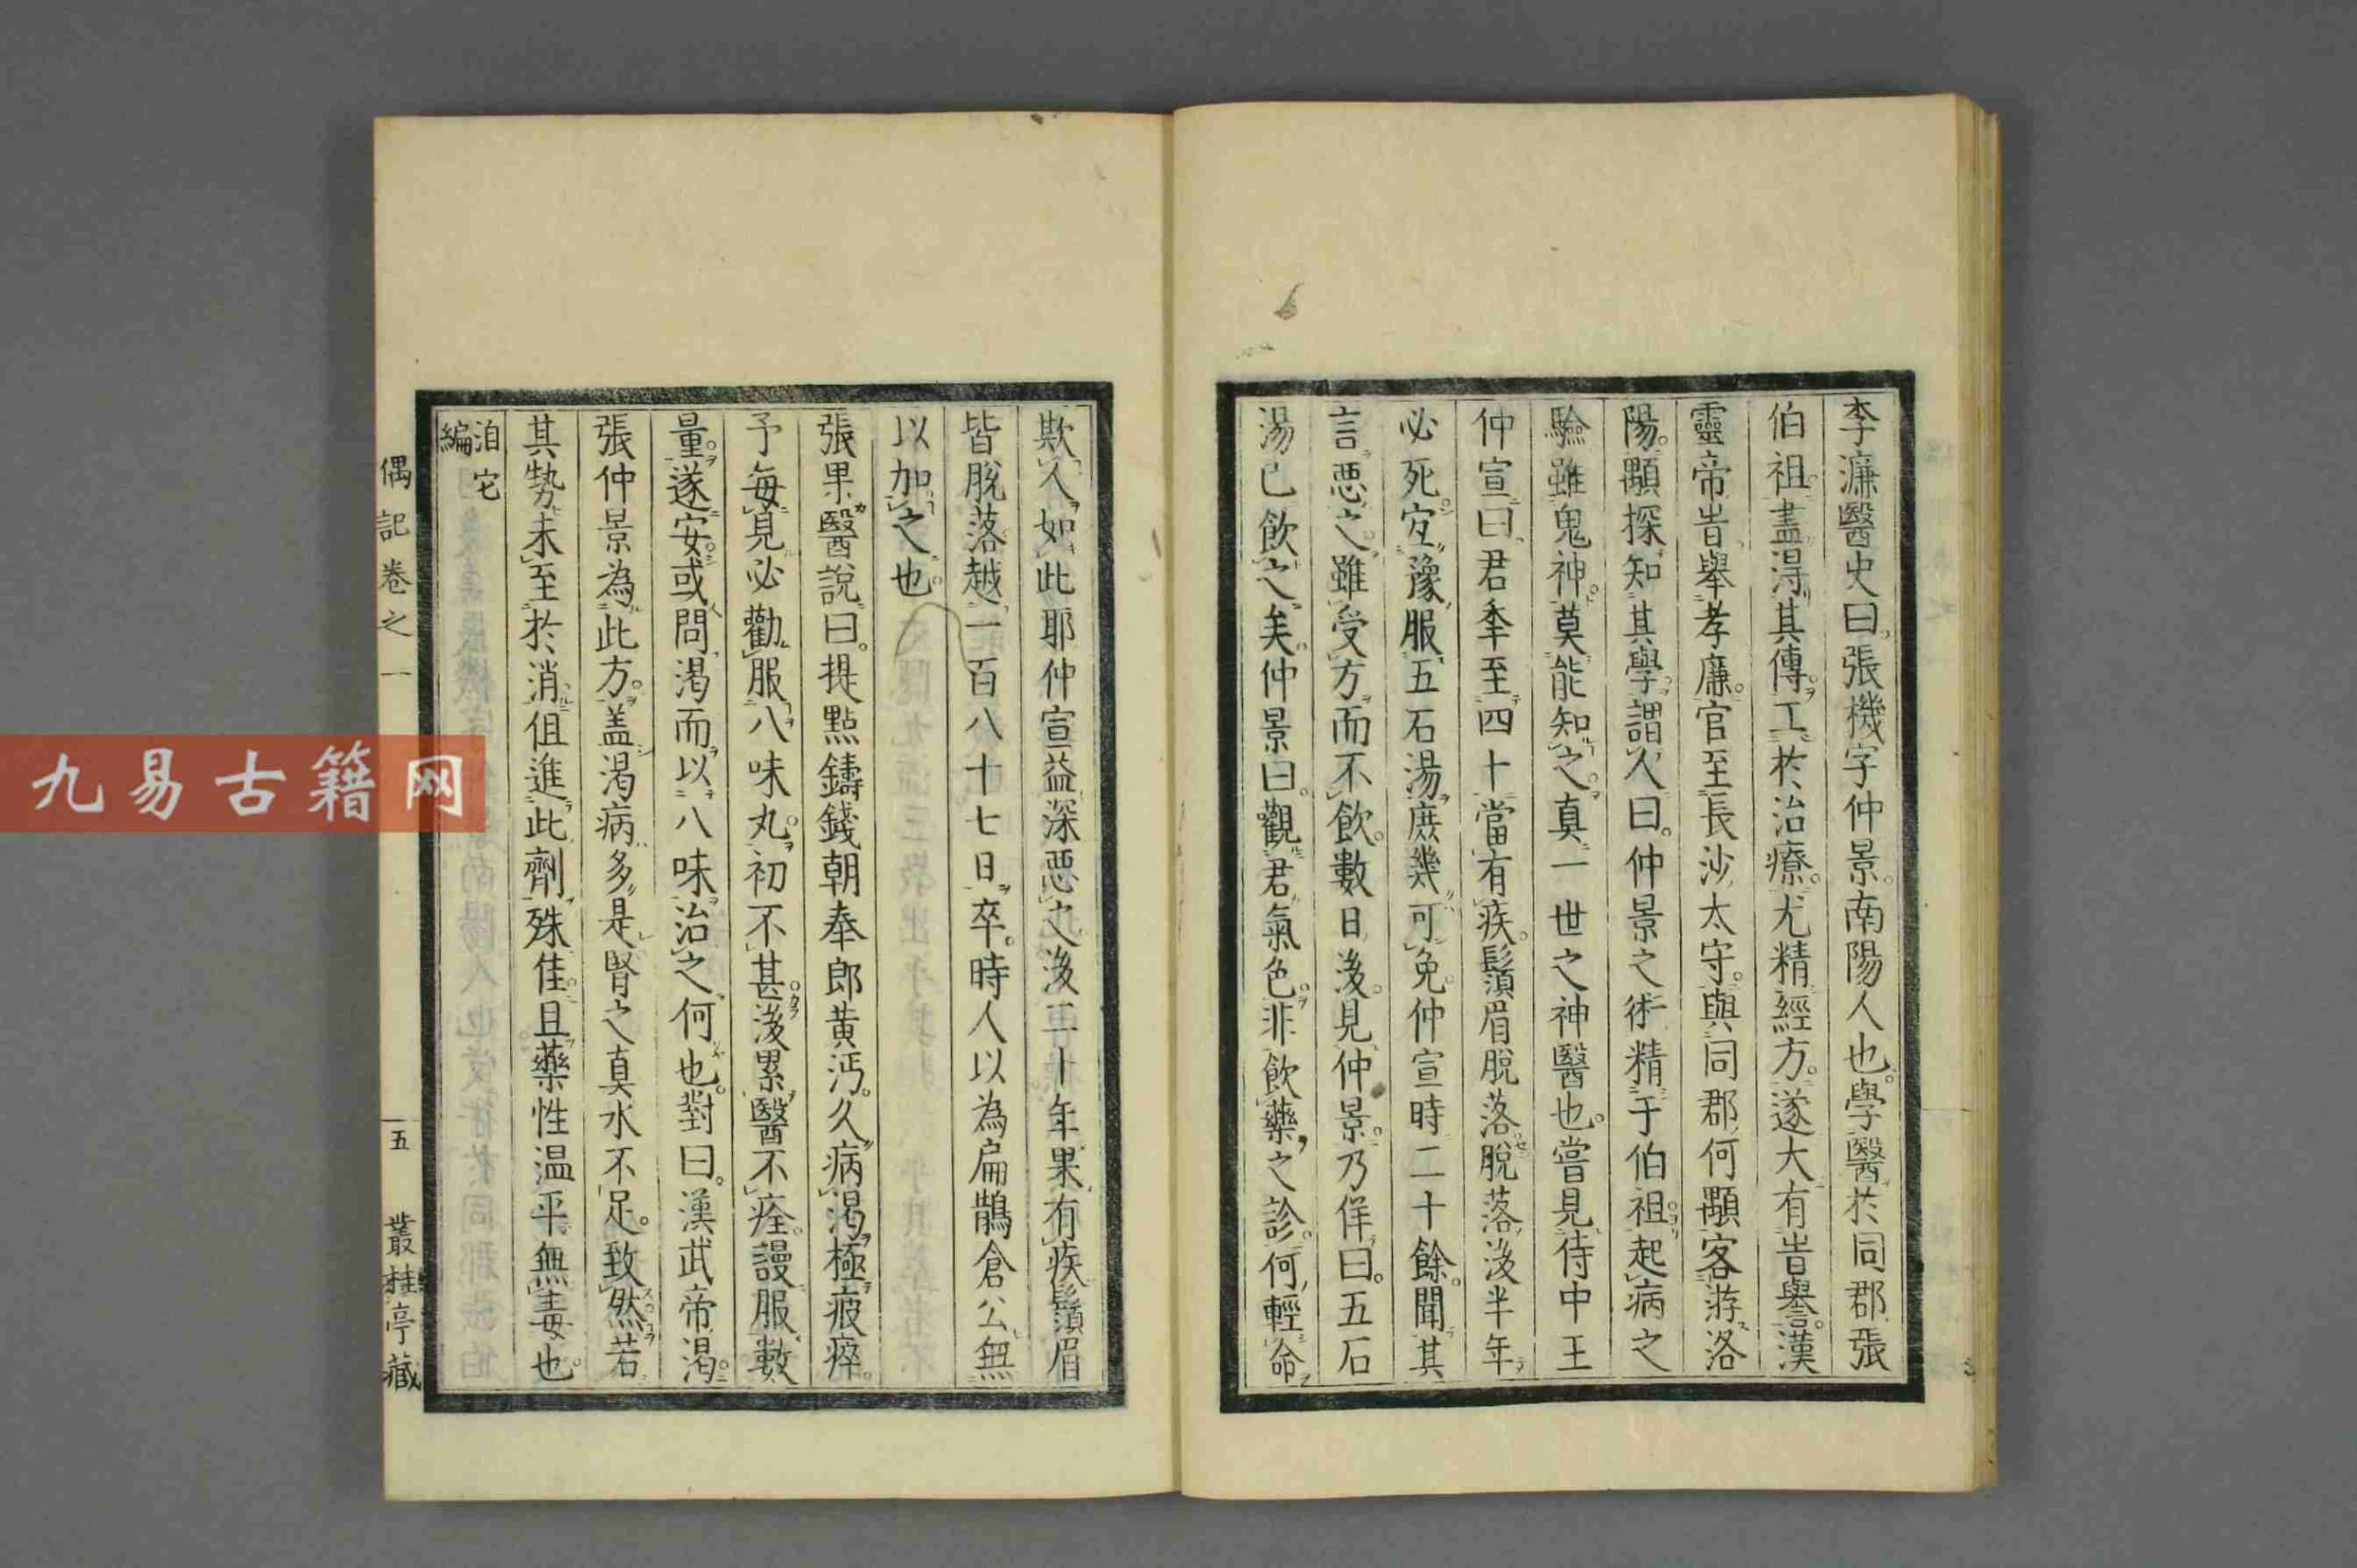 李濂醫史曰張機字仲景南陽人也學醫於同郡張
伯祖盡得其傳工於治療尤精經方遂大有旹譽漢
靈帝旹舉孝廉官至長沙太守與同郡何顒客游洛
陽顒探知其學謂人曰仲景之術精于伯祖起病之
驗雖鬼神莫能知之真一世之神醫也嘗見侍中王
仲宣曰君秊至四十當有疾鬚眉脫落脫落後半年
必死宐豫服五石湯庶幾可免仲宣時二十餘聞其
言惡之雖受方而不飲數日後見仲景乃佯曰五石
湯已飲之矣仲景曰觀君氣色非飲藥之診何輕命
欺人如此耶仲宣益深惡之後二十年果有疾鬚眉
皆脫落越一百八十七日卒時人以為扁鵲倉公無
以加之也
張果醫說曰提點鑄錢朝奉郎黃沔久病渴極疲瘁
予每見必勸服八味丸初不甚後累醫不痊謾服數
量遂安或問渴而以八味治之何也對曰漢武帝渴
張仲景為此方蓋渴病多是腎之真水不足致然若
其勢未至於消但進此劑殊佳且藥性温平無毒也
洎宅
編
偶記卷之一
五
叢桂亭藏
九易古籍网